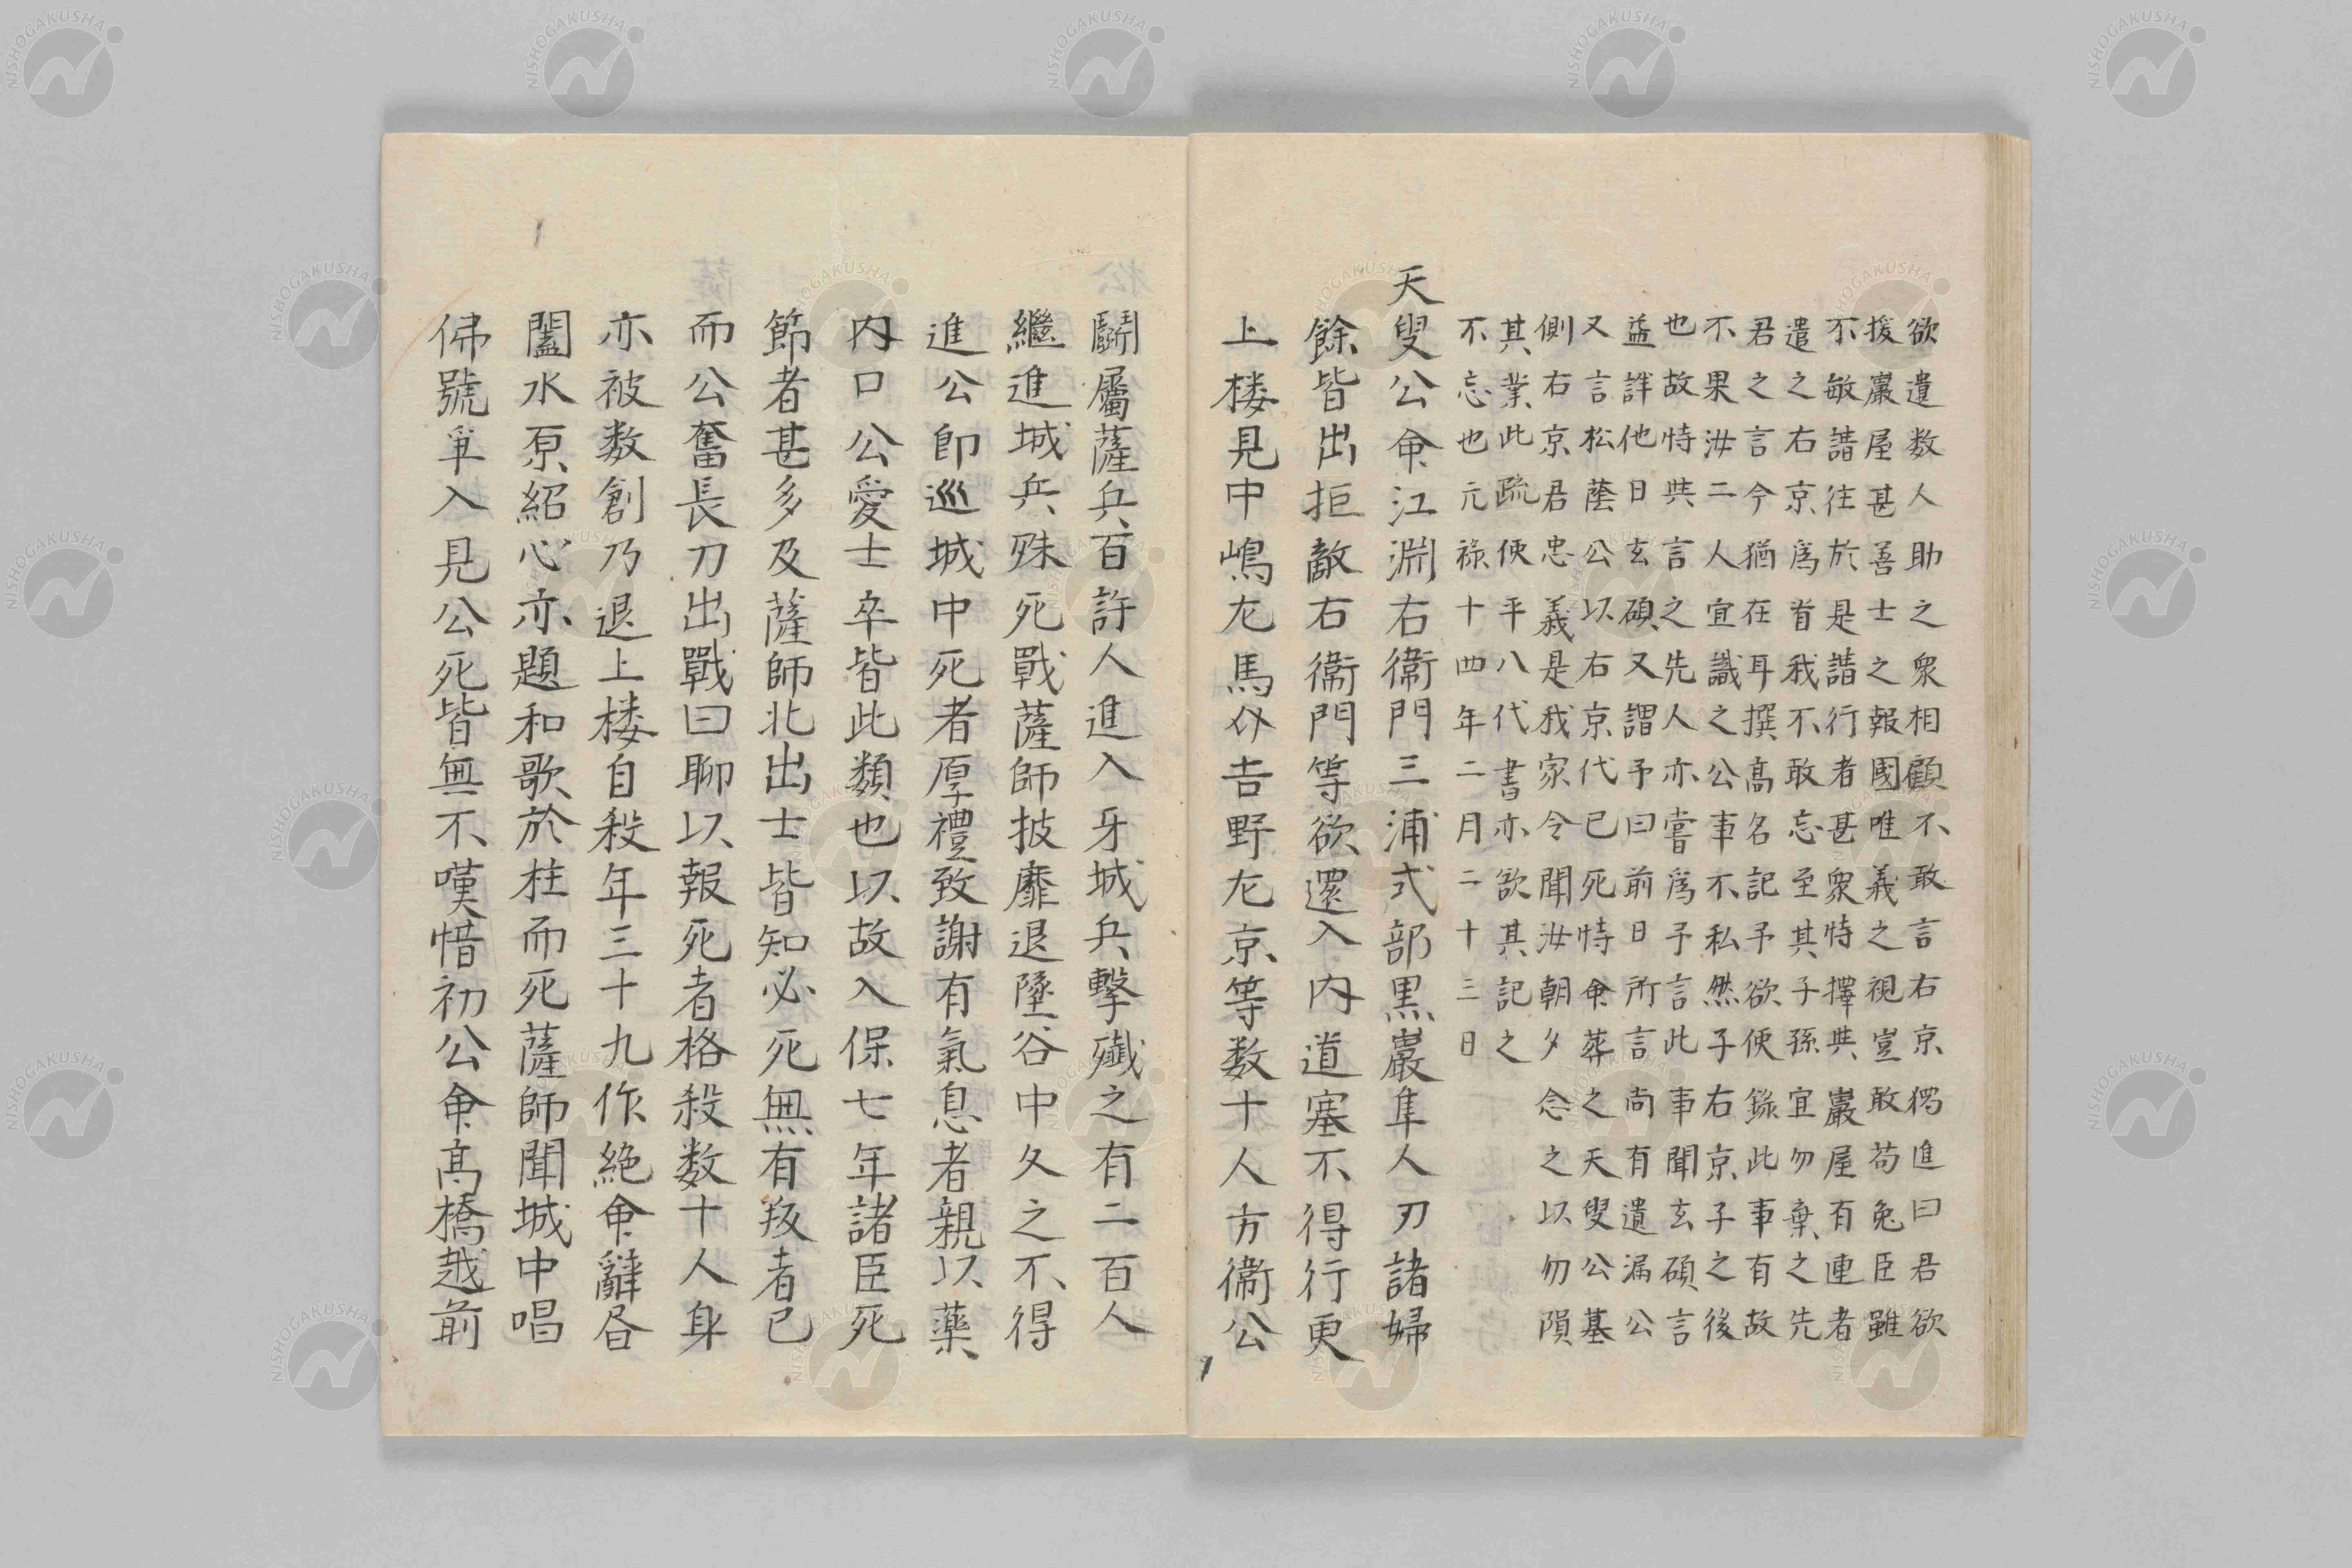 欲遣数人助之衆相顧不敢言右京獨進曰君欲
援巖屋甚善士之報國唯義之視豈敢苟免臣雖
不敏請往於是請行者甚衆特擇與巖屋有連者
遣之右京為首我不敢忘至其子孫宜勿棄之先
君之言今猶在耳撰髙名記予欲使錄此事有故
不果汝二人宜識之公事不私然子右京子之後
也故特與言之先人亦嘗為予言此事聞玄碩言
益詳他日玄碩又謂予曰前日所言尚有遺漏公
又言松蔭公以右京代已死特命葬之天叟公墓
側右京君忠義是我家令聞汝朝夕念之以勿隕
其業此疏便平八代書亦欲其記之
不忘也元祿十四年二月二十三日
天叟公命江淵右衞門三浦式部黒巖隼人刃諸婦
餘皆出拒敵右衞門等欲還入内道塞不得行更
上楼見中嶋左馬𠆢吉野左京等数十人方衞公
鬭屬薩兵百許人進入牙城兵擊殱之有二百人
繼進城兵殊死戰薩師披靡退墜谷中久之不得
進公即巡城中死者厚禮致謝有氣息者親以藥
内口公愛士卒皆此類也以故入保七年諸臣死
節者甚多及薩師北出士皆知必死無有叛者已
而公奮長刀出戰曰聊以報死者格殺数十人身
亦被数創乃退上楼自殺年三十九作絶命辭昏
闔水原紹心亦題和歌於柱而死薩師聞城中唱
佛號爭入見公死皆無不嘆惜初公命髙橋越前